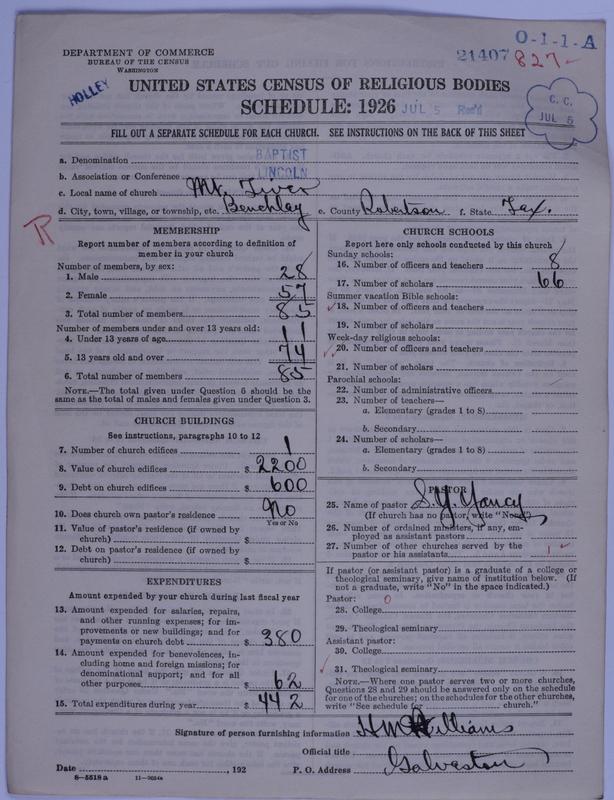 O-1-1-A
21407 827
DEPARTMENT OF COMMERCE
BUREAU OF THE CENSUS
WASHINGTON
HOLLEY
UNITED STATES CENSUS OF RELIGIOUS BODIES
SCHEDULE: 1926 JUL 5 Rec'd
C. C.
JUL 5
FILL OUT A SEPARATE SCHEDULE FOR EACH CHURCH. SEE INSTRUCTIONS ON THE BACK OF THIS SHEET
a. Denomination BAPTIST
b. Association or Conference LINCOLN
c. Local name of church Mt.
d. City, town, village, or township, etc. Benchley e. County Robertson f. State Tex.
R
MEMBERSHIP
Report number of members according to definition of
member in your church
Number of members, by sex:
1. Male 28
2. Female 57
3. Total number of members 85
Number of members under and over 13 years old:
4. Under 13 years of age 11
5. 13 years old and over 74
6. Total number of members 85
NOTE.—The total given under Question 6 should be the
same as the total of males and females given under Question 3.
CHURCH BUILDINGS
See instructions, paragraphs 10 to 12
7. Number of church edifices 1
8. Value of church edifices $ 2200
9. Debt on church edifices $ 600
10. Does church own pastor's residence? No
Yes or No
11. Value of pastor's residence (if owned by
church) $
12. Debt on pastor's residence (if owned by
church) $
EXPENDITURES
Amount expended by your church during last fiscal year
13. Amount expended for salaries, repairs,
and other running expenses; for im-
provements or new buildings; and for
payments on church debt $ 380
14. Amount expended for benevolences, in-
cluding home and foreign missions; for
denominational support; and for all
other purposes $ 62
15. Total expenditures during year $ 442
CHURCH SCHOOLS
Report here only schools conducted by this church
Sunday schools:
16. Number of officers and teachers 8
17. Number of scholars 66
Summer vacation Bible schools:
18. Number of officers and teachers
19. Number of scholars
Week-day religious schools:
20. Number of officers and teachers
21. Number of scholars
Parochial schools:
22. Number of administrative officers
23. Number of teachers—
a. Elementary (grades 1 to 8)
b. Secondary
24. Number of scholars—
a. Elementary (grades 1 to 8)
b. Secondary
PASTOR
25. Name of pastor S. Y. Yancy
(If church has no pastor, write "None")
26. Number of ordained ministers, if any, em-
ployed as assistant pastors
27. Number of other churches served by the
pastor or his assistants 1
If pastor (or assistant pastor) is a graduate of a college or
theological seminary, give name of institution below. (If
not a graduate, write "No" in the space indicated.)
Pastor: 0
28. College
29. Theological seminary
Assistant pastor:
30. College
31. Theological seminary
NOTE.—Where one pastor serves two or more churches,
Questions 28 and 29 should be answered only on the schedule
for one of the churches; on the schedules for the other churches,
write "See schedule for church."
Signature of person furnishing information H M Williams
Official title
Date , 192 P. O. Address Galveston
8—5518 a 11—9034a